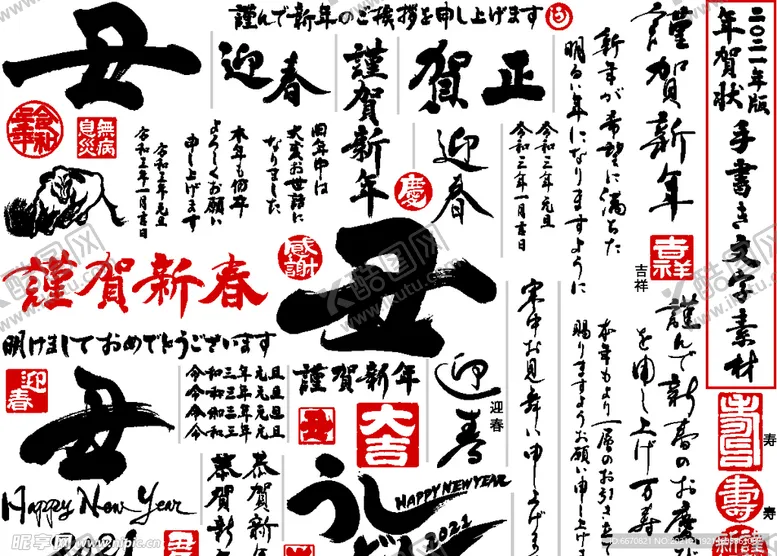 二〇二一年版
年賀状
手書き文字素材
謹んで新年のご挨拶を申し上げます
丑
迎春
謹賀新年
賀正
謹賀新年
新年が希望に満ちた
明るい年になりますように
令和三年元旦
令和三年一月吉日
迎春
慶
吉祥
吉祥
令和三年
無病息災
旧年中は
大変お世話に
なりました
本年も何卒
よろしくお願い
申し上げます
令和三年元旦
令和三年一月吉日
感謝
丑
謹賀新春
明けましておめでとうございます
寒中お見舞い申し上げ
謹んで新春のお慶
を申し上げ
本年もより一層のお引き立て
賜りますようお願い申し上げ
迎春
丑
令和三年元旦
令和三年元旦
令和三年元旦
令和三年元旦
謹賀新年
丑
大吉
迎春
迎春
寿
寿
寿
寿
Happy New Year
恭賀新年
恭賀新年
うし
HAPPY NEW YEAR
2021
昵享网 www.nipic.cn